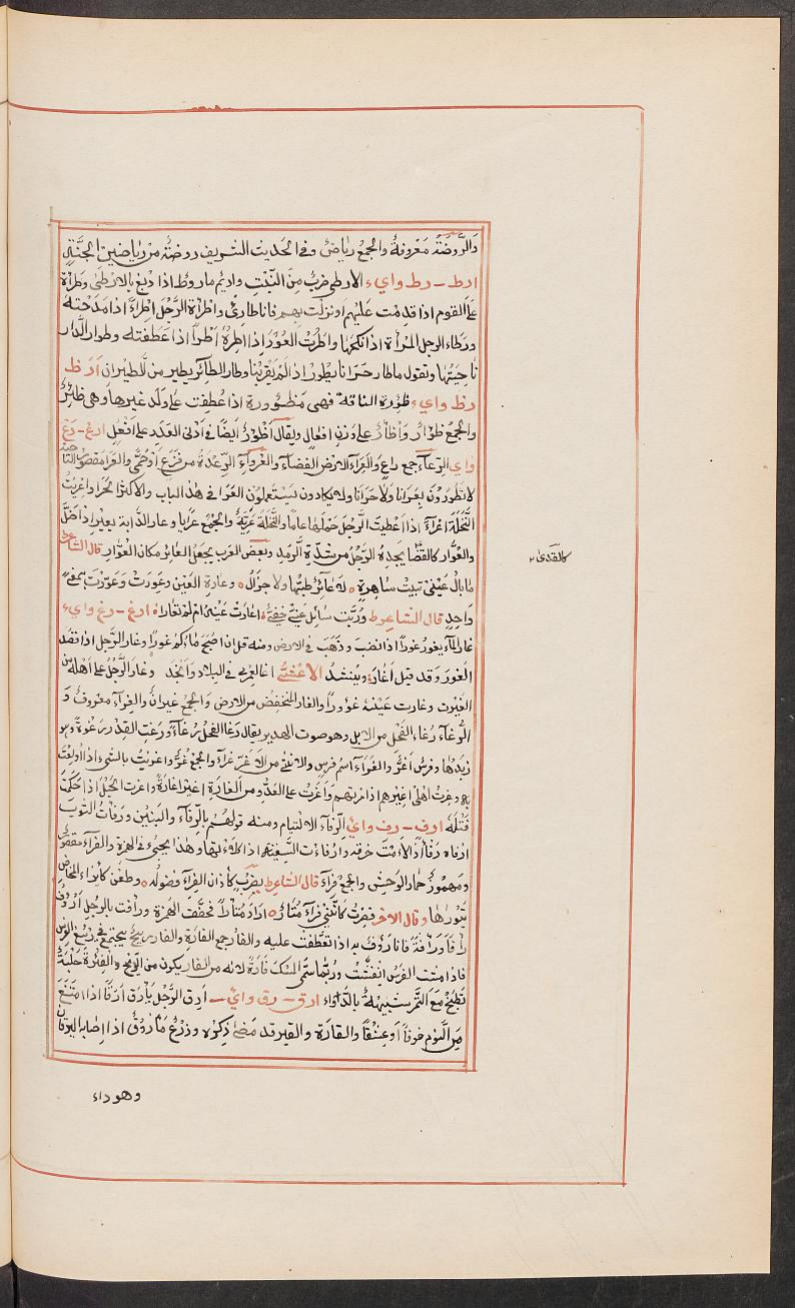 والروضة معروفة والجمع رياض وفي الحديث الشريف روضة من رياض الجنة
ارط - رط واي الارطى ضرب من النبت واديم ماروط اذا دبغ بالارطى وطرأة
على القوم اذا قدمت عليهم او نزلت بهم فانا طارئ واطرأة الرجل اطراء اذا مدحته
ورطاء الرجل المرأة اذا نكحها واطرت العود اذا اطره اطرا اذا عطفته وطوار الدار
ناحيتها وتقول ما طار حرانا يطور اذا لم يقربنا وطار الطائر يطير من الطيران ارظ
رظ واي ظؤرة الناقة فهي مظؤورة اذا عطفت على ولد غيرها وهي ظئر
والجمع ظؤار واظار على وزن افعال ويقال اظؤر ايضا في ادنى العدد على افعل ارع - رع
واي الرعاء جمع راع والعراء الارض الفضاء والعرواء الرعدة من فزع او حمى والعرا مقصور الناحية
لا تطورون بعرانا ولا حرانا ولا يكادون يستعملون العرا في هذا الباب والاكثر الحرا واعريت
النخلة اعراء اذا اعطيت الرجل حملها عاما والنخلة عرية والجمع عرايا وعار الدابة يعير اذا ضل
والعوار كالقذا يجده الرجل من شدة الرمد وبعض العرب يجعل العائر مكان العوار قال الشاعر
كالقذى
ما بال عيني تبيت ساهرة له عائر طبتها ولا حوال وعارة العين وعورت وعورت بمعنى
واحد قال الشاعر وربت سائل عني خفي اعارت عينه ام لم تعارا ارغ - رغ واي
غار الماء يغور غورا اذا نضب وذهب في الارض ومنه قل ان اصبح ماؤكم غورا وغار الرجل اذا قصد
الغور وقد قيل اغار وينشد الاعشى اغار لعمري في البلاد وانجد وغار الرجل على اهله من
الغيرة وغارت عينه غؤورا والغار المنخفض من الارض والجمع غيران والغراء معروف و
الرغاء رغاء الفحل من الابل وهو صوت الهدير يقال رغا الفحل رغاء ورغت القدر رغوة وهو
زبدها وفرس اغر والغراء اسم فرس والانثى من الاغر غراء والجمع غر واغريت بالشيء اذا اولعت
به وغرت اهلي اغيرهم اذا مرتهم واغرت على العدو من الغارة اغير اغارة واغرت الحبل اذا احكمت
فتله ارف - رف واي الرفاء الالتيام ومنه قولهم بالرفاء والبنين ورفات الثوب
ارفاه رفأ اذا لامت خرقه وارفاءت السفينة اذا كلاءتها وهذا يجيء في الهمزة والفراء مقصور
ومهموز حمار الوحش والجمع فراء قال الشاعر بضرب كاذان الفراء فضوله وطعن كايزاء المخاض
تبورها وقال الاخر ففرت كانني فراء متار اراد متارا فخفف الهمزة ورأفت بالرجل اروف
رافا ورافة فانا رؤف به اذا تعطفت عليه والفار جمع الفارة والفار ريح يجتمع في رسغ الفرس
فاذا مشت الفرس انفشت وربما سمى المسك فارة لانه من الفار يكون من الريح والفئرة حلبة
تطبخ مع التمر شبيهة بالدواء ارق - رق واي - ارق الرجل يأرق ارقا اذا امتنع
من النوم خوفا او عشقا والقارة والقير قد مضى ذكره وزرع مأروق اذا اصابه اليرقان
وهو داء